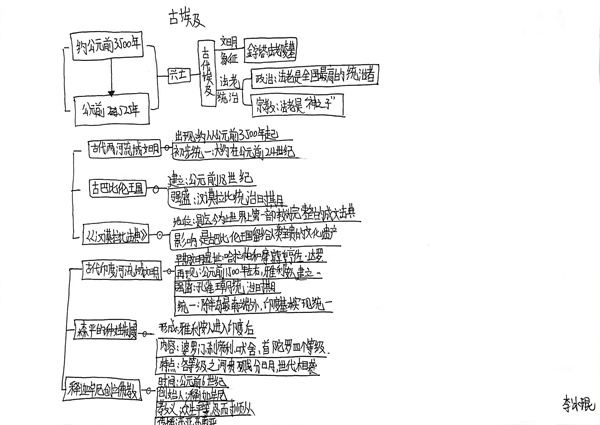 古埃及
约公元前3500年
公元前525年
兴亡
古代埃及
文明象征
金字塔:法老陵墓
法老统治
政治:法老是全国最高的统治者
宗教:法老是“神之子”
古代两河流域文明
出现:约从公元前3500年起
初步统一:大约在公元前24世纪
古巴比伦王国
建立:公元前18世纪
强盛:汉谟拉比统治时期
《汉谟拉比法典》
地位:是迄今为止世界上第一部较为完整的成文法典
影响:是古巴比伦王国留给人类宝贵的文化遗产
古代印度河流域文明
早期文明遗址:哈拉帕和摩亨佐·达罗
再现:公元前1500年左右,雅利安人建立
强盛:孔雀王朝统治时期
统一:除半岛最南端外,印度基本实现统一
森严的种姓制度
形成:雅利安人进入印度后
内容:婆罗门、刹帝利、吠舍、首陀罗四个等级
特点:各等级之间贵贱分明,世代相袭
释迦牟尼创立佛教
时间:公元前6世纪
创始人:释迦牟尼
教义:众生平等,忍耐顺从